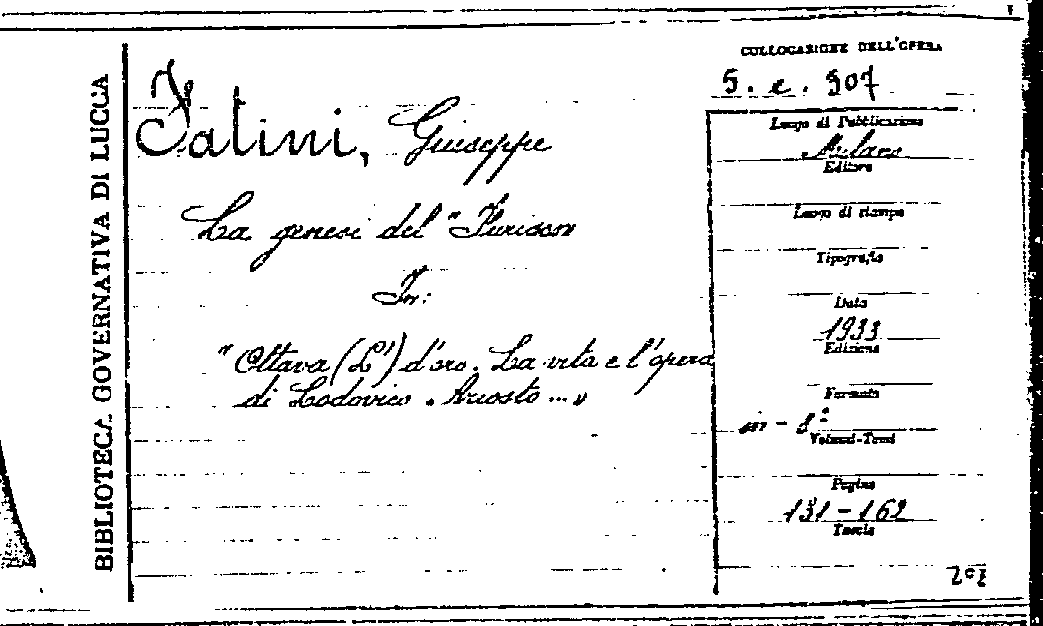 BIBLIOTECA GOVERNATIVA DI LUCCA
Fatini, Giuseppe
La genesi del "Furioso"
In:
"Ottava (L') d'oro. La vita e l'opera
di Lodovico Ariosto..."
COLLOCAZIONE DELL'OPERA
5. e. 307
Luogo di Pubblicazione
Milano
Editore
Luogo di stampa
Tipografia
Data
1933
Edizione
Formato
in-8º
Volumi-Tomi
Pagine
131-162
Tavole